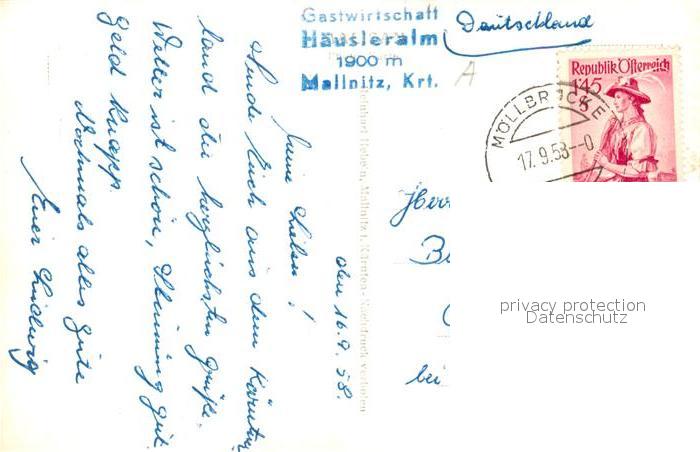 Gastwirtschaft
Häusleralm
1900 m
Mallnitz, Krt.
A
Deutschland
Republik Österreich
1'45
S
MÖLLBRÜCKE
17.9.58--0
den 16.9.58.
Meine Lieben!
Sende Euch aus dem Kärntner
land die herzlichsten Grüße.
Wetter ist schön, Stimmung gut.
Geld knapp
Nochmals alles gute
Euer Ludwig
Mallnitz, Kärnten - Nachdruck verboten
Herr
B
bei
privacy protection
Datenschutz